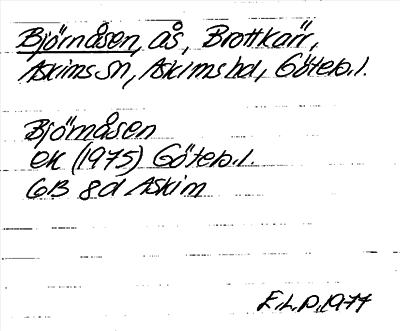 Björnåsen, ås, Brottkärr,
Askims sn, Askims hd, Göteb.l.
Björnåsen
ek (1975) Göteb.l.
6B 8d Askim
E.L.P. 1977